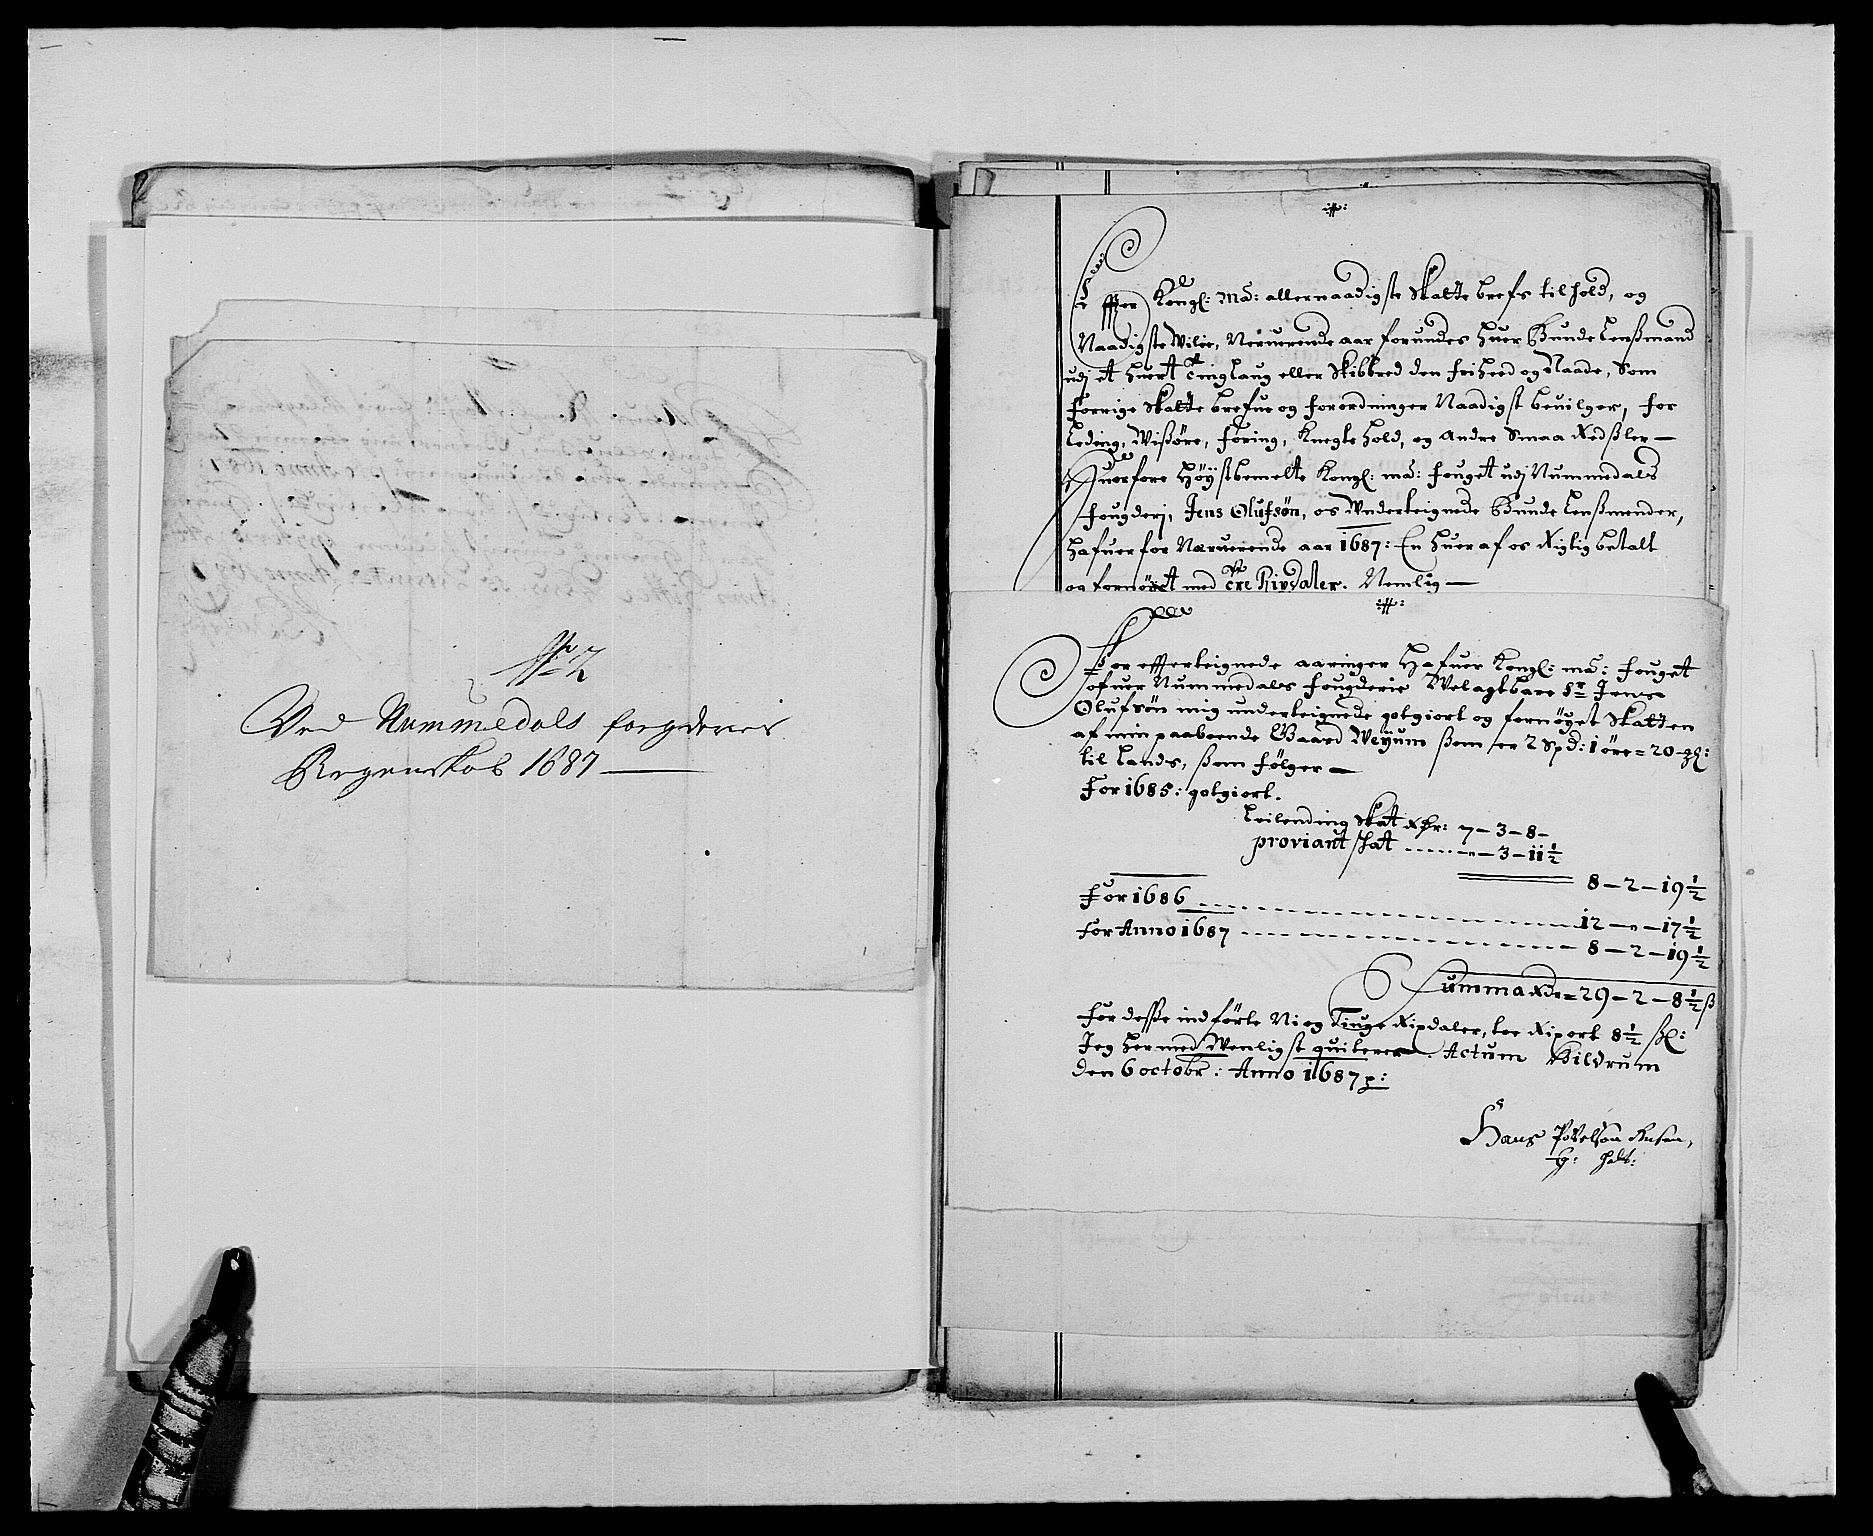 Ved Nummedals fougderies
Regenskab 1687
Effter Kongl: Ma: allernaadigste Skatte brefs tilhold, og
Naadigste Wilie, Nerverende aar forundes huer Bunde Lensmand
udj et huert Tinglaug eller Skibbred den friheed og Naade, Som
forrige Skatte brefue og forordninger Naadigst beuilger, for
Leding, Wisøre, Føring, Knegte hold, og andre Smaa Redsler
Huorfore Høystbemelte Kongl: ma: fouget udj Nummedals
fougderj, Jens Olufsøn, os Underteignede Bunde Lensmender,
Hafuer for Nærverende aar 1687: En huer af os Rigtig betalt
og fornøyet med Tre Rixdaler. Nemlig
For effterteignede aaringer Hafuer Kongl: ma: fouget
ofuer Nummedals fougderie Welagtbare Sr Jens
Olufsøn mig underteignede gotgiort og fornøyet Skatten
af min paaboende Gaard Weyum ßom er 2 Spd: 1 øre = 20 gl:
til Lands, ßom følger
For 1685: gotgiort.
Leilending Skat Rdr: 7 - 3 - 8 -
proviant skat ...... - " - 3 - 11 ½
8 - 2 - 19 ½
For 1686 ---- 12 - " - 17 ½
for Anno 1687 ---- 8 - 2 - 19 ½
Summa Rdr = 29 - 2 - 8 ½ ß
for desse indførte Ni og Tiuge Rixdaler, toe Rixort 8 ½ ßl:
Jeg hermed Wenligst quiterer. Actum Bildrum
den 6 octobr: Anno 1687 p:
Hans Povelsøn